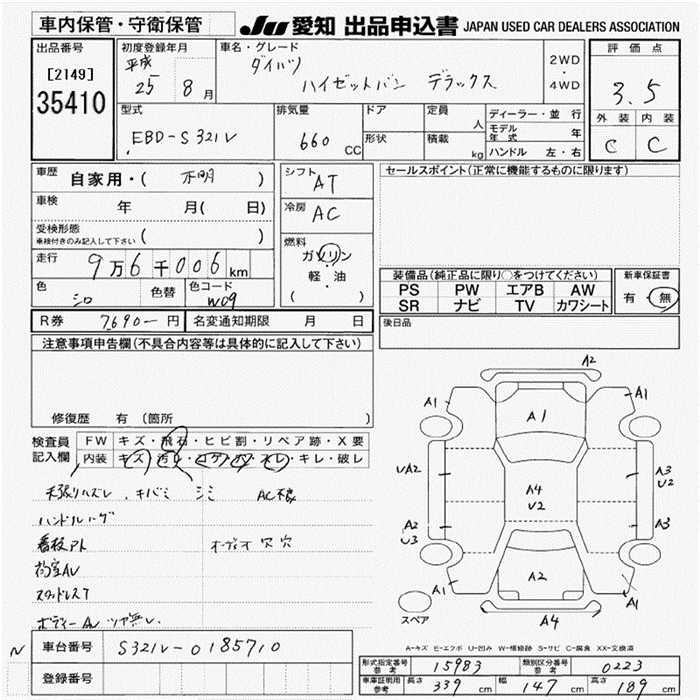 車内保管・守衛保管
JU 愛知 出品申込書 JAPAN USED CAR DEALERS ASSOCIATION
出品番号
[2149]
35410
初度登録年月
平成
25 8 月
車名・グレード
ダイハツ
ハイゼットバン デラックス
2WD
・
4WD
評価点
3.5
外装 内装
C C
型式
EBD-S321V
排気量
660 CC
ドア
形状
定員
人
積載
kg
ディーラー・並行
モデル年式 年
ハンドル 左・右
車歴
自家用・( 不明 )
車検
年 月( 日)
受検形態
車検付きのみ記入して下さい ( )
走行
9万6千006km
色
シロ
色替
色コード
W09
シフト
AT
冷房
AC
燃料
ガソリン
軽・油
( )
セールスポイント(正常に機能するものに限ります)
装備品(純正品に限り○をつけてください)
PS PW エアB AW
SR ナビ TV カワシート
新車保証書
有・無
後日品
R券 7690- 円 名変通知期限 月 日
注意事項申告欄(不具合内容等は具体的に記入して下さい)
修復歴 有(箇所 )
検査員記入欄
FW キズ・飛石・ヒビ割・リペア跡・X要
内装 キズ・汚レ・コゲ・穴・スレ・キレ・破レ
天張りハズレ、キバミ シミ AC不良
ハンドルハゲ
看板アト オーディオ穴穴
荷室AU
スタッドレスT
ボディーAU ツヤ無し
N
車台番号 S321V-0185710
登録番号
A2
A1 A1
A1
UA2
A3
U2
A4
U2
A2
U3
A3
A2
A1 A1
A4
スペア
A-キズ E-エクボ U-凹み W-補修跡 S-サビ C-腐食 XX-交換済
形式指定番号参考 15983 類別区分番号参考 0223
車庫証明用参考 長さ 339 cm 幅 147 cm 高さ 189 cm